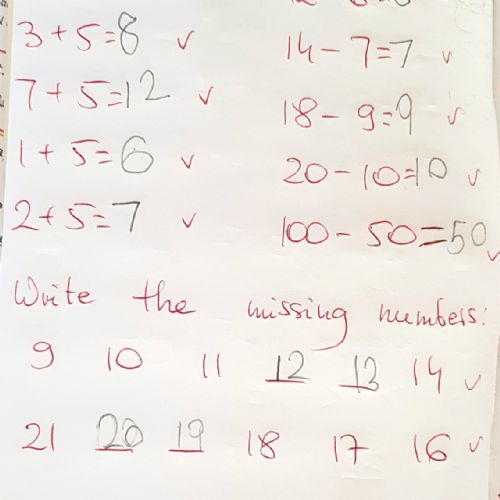 3 + 5 = 8 ✓
7 + 5 = 12 ✓
1 + 5 = 6 ✓
2 + 5 = 7 ✓
14 - 7 = 7 ✓
18 - 9 = 9 ✓
20 - 10 = 10 ✓
100 - 50 = 50 ✓
Write the missing numbers:
9 10 11 12 13 14 ✓
21 20 19 18 17 16 ✓